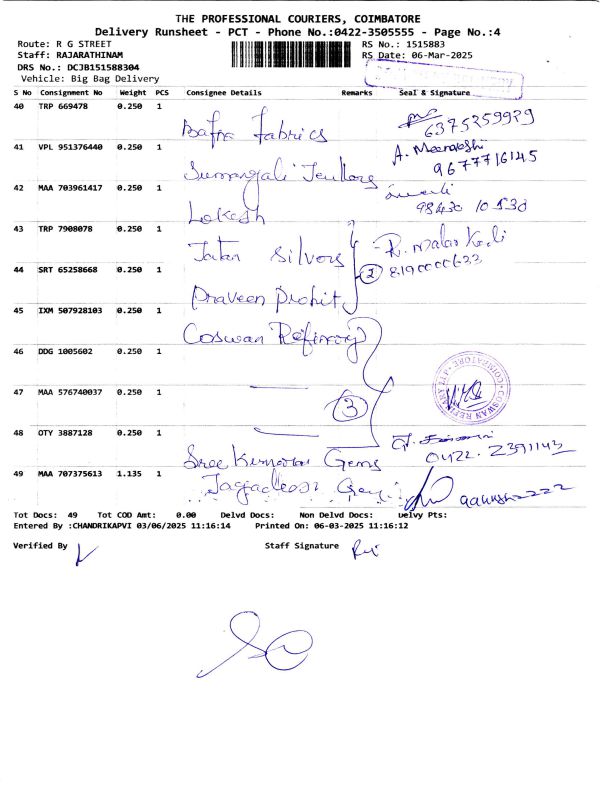 THE PROFESSIONAL COURIERS, COIMBATORE
Delivery Runsheet - PCT - Phone No.:0422-3505555 - Page No.:4
Route: R G STREET
RS No.: 1515883
Staff: RAJARATHINAM
RS Date: 06-Mar-2025
DRS No.: DCJB151588304
Vehicle: Big Bag Delivery
S No Consignment No Weight PCS Consignee Details Remarks Seal & Signature
40 TRP 669478 0.250 1
Bafna Fabrics 6375259929
41 VPL 951376440 0.250 1 A. Meenakshi
Sumangali Jewllars 9677716145
42 MAA 703961417 0.250 1
Lokesh 98430 10530
43 TRP 7908078 0.250 1
Jatan Silvors 2 R. Malar Kodi
8190000633
44 SRT 65258668 0.250 1
Praveen Prohit
45 IXM 507928103 0.250 1
Coswan Refinary
46 DDG 1005602 0.250 1
COSWAN REFINARY PVT LTD COIMBATORE
47 MAA 576740037 0.250 1
3
48 OTY 3887128 0.250 1
Sree Kumaran Gems 0422. 2391143
49 MAA 707375613 1.135 1
Jagadeesh
Tot Docs: 49 Tot COD Amt: 0.00 Delvd Docs: Non Delvd Docs: Delvy Pts:
Entered By :CHANDRIKAPVI 03/06/2025 11:16:14 Printed On: 06-03-2025 11:16:12
Verified By Staff Signature